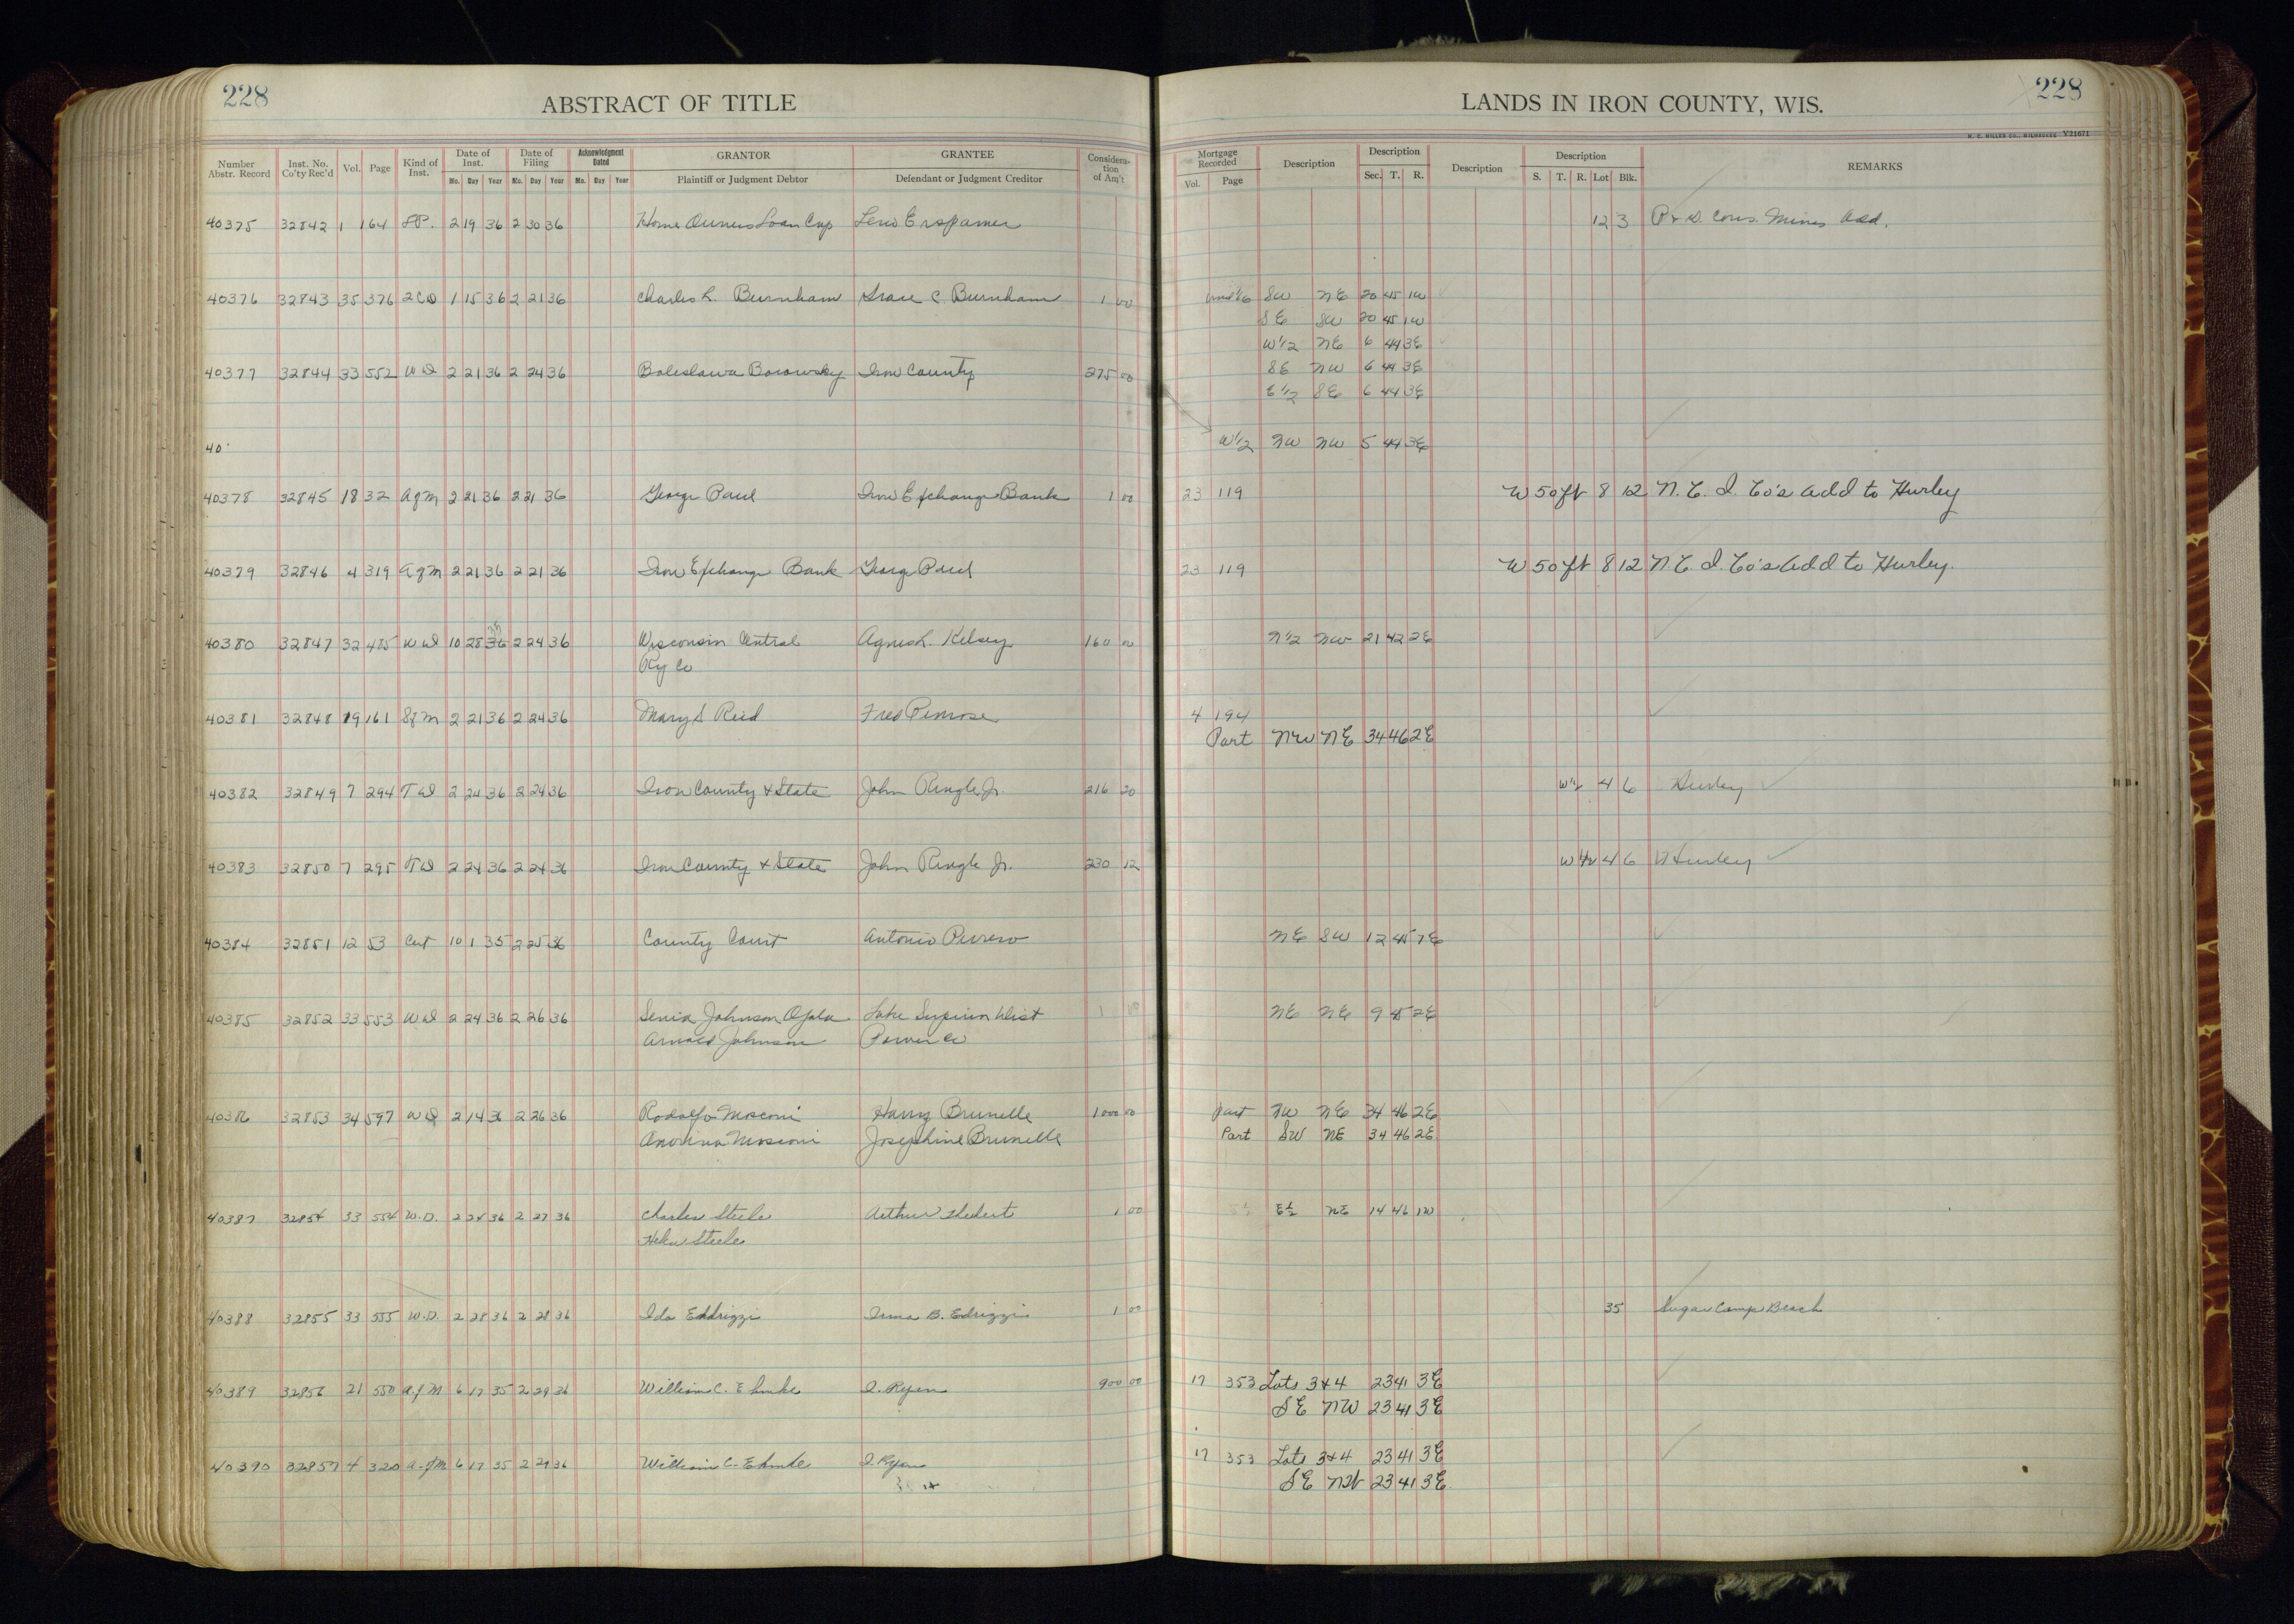 228
ABSTRACT OF TITLE
LANDS IN IRON COUNTY, WIS.
228
H. C. MILLER CO., MILWAUKEE Y21671
Number Abstr. Record Inst. No. Co'ty Rec'd Vol. Page Kind of Inst. Date of Inst. Date of Filing Acknowledgment Dated GRANTOR GRANTEE Consideration of Am't Mortgage Recorded Description Description Description Description REMARKS
Mo. Day Year Mo. Day Year Mo. Day Year Plaintiff or Judgment Debtor Defendant or Judgment Creditor Vol. Page Sec. T. R. S. T. R. Lot Blk.
40375 32842 1 164 2 19 36 2 30 36 Home Owners Loan Corp Erspamer 12 3 Cons. Mines Add.
40376 32843 35 376 2CD 1 15 36 2 21 36 Charles L. Burnham Grace C. Burnham 1 00 und 1/6 SW NE 20 45 1W
SE SW 20 45 1W
W1/2 NE 6 44 3E
40377 32844 33 552 WD 2 21 36 2 24 36 Boleslawa Borowsky Iron County 275 00 SE NW 6 44 3E
E1/2 SE 6 44 3E
40 W1/2 NW NW 5 44 3E
40378 32845 18 32 Agm 2 21 36 2 21 36 George Paul Iron Exchange Bank 1 00 23 119 W 50 ft 8 12 N. C. I. Co's Add to Hurley
40379 32846 4 319 Agm 2 21 36 2 21 36 Iron Exchange Bank George Paul 23 119 W 50 ft 8 12 N. C. I. Co's Add to Hurley.
40380 32847 32 485 WD 10 28 36 2 24 36 Wisconsin Central Agnes L. Kelsey 160 00 N1/2 NW 21 42 2E
Ry Co
40381 32848 19 161 Sgm 2 21 36 2 24 36 Mary S Reid Fred Penrose 4 194
Part NW NE 34 46 2E
40382 32849 7 294 TD 2 24 36 2 24 36 Iron County & State John Ringle Jr. 216 20 W1/2 4 6 Hurley
40383 32850 7 295 TD 2 24 36 2 24 36 Iron County & State John Ringle Jr. 230 12 W1/2 4 6 Hurley
40384 32851 12 53 Cert 10 1 35 2 25 36 County Court Antonio NE SW 12 45 1E
40385 32852 33 553 WD 2 24 36 2 26 36 Senia Johnson Ojala Lake Superior Dist 1 00 NE NE 9 45 2E
Arnold Johnson Power Co
40386 32853 34 597 WD 2 14 36 2 26 36 Rodolfo Mosconi Harry Brunelle 1000 00 Part NW NE 34 46 2E
Mosconi Josephine Brunelle Part SW NE 34 46 2E
40387 32854 33 554 W.D. 2 24 36 2 27 36 Charles Steele Arthur Hebert 1 00 E½ NE 14 46 1W
Helen Steele
40388 32855 33 555 W.D. 2 28 36 2 28 36 Ida Eddrizzi Irma B. Edrizzi 1 00 35 Sugar Camp Beach
40389 32856 21 550 A.g.M 6 17 35 2 29 36 William C. Ehmke I. Ryan 900 00 17 353 Lots 3&4 23 41 3E
SE NW 23 41 3E
40390 32857 4 320 A.g.M 6 17 35 2 29 36 William C. Ehmke I. Ryan 17 353 Lots 3&4 23 41 3E
SE NW 23 41 3E